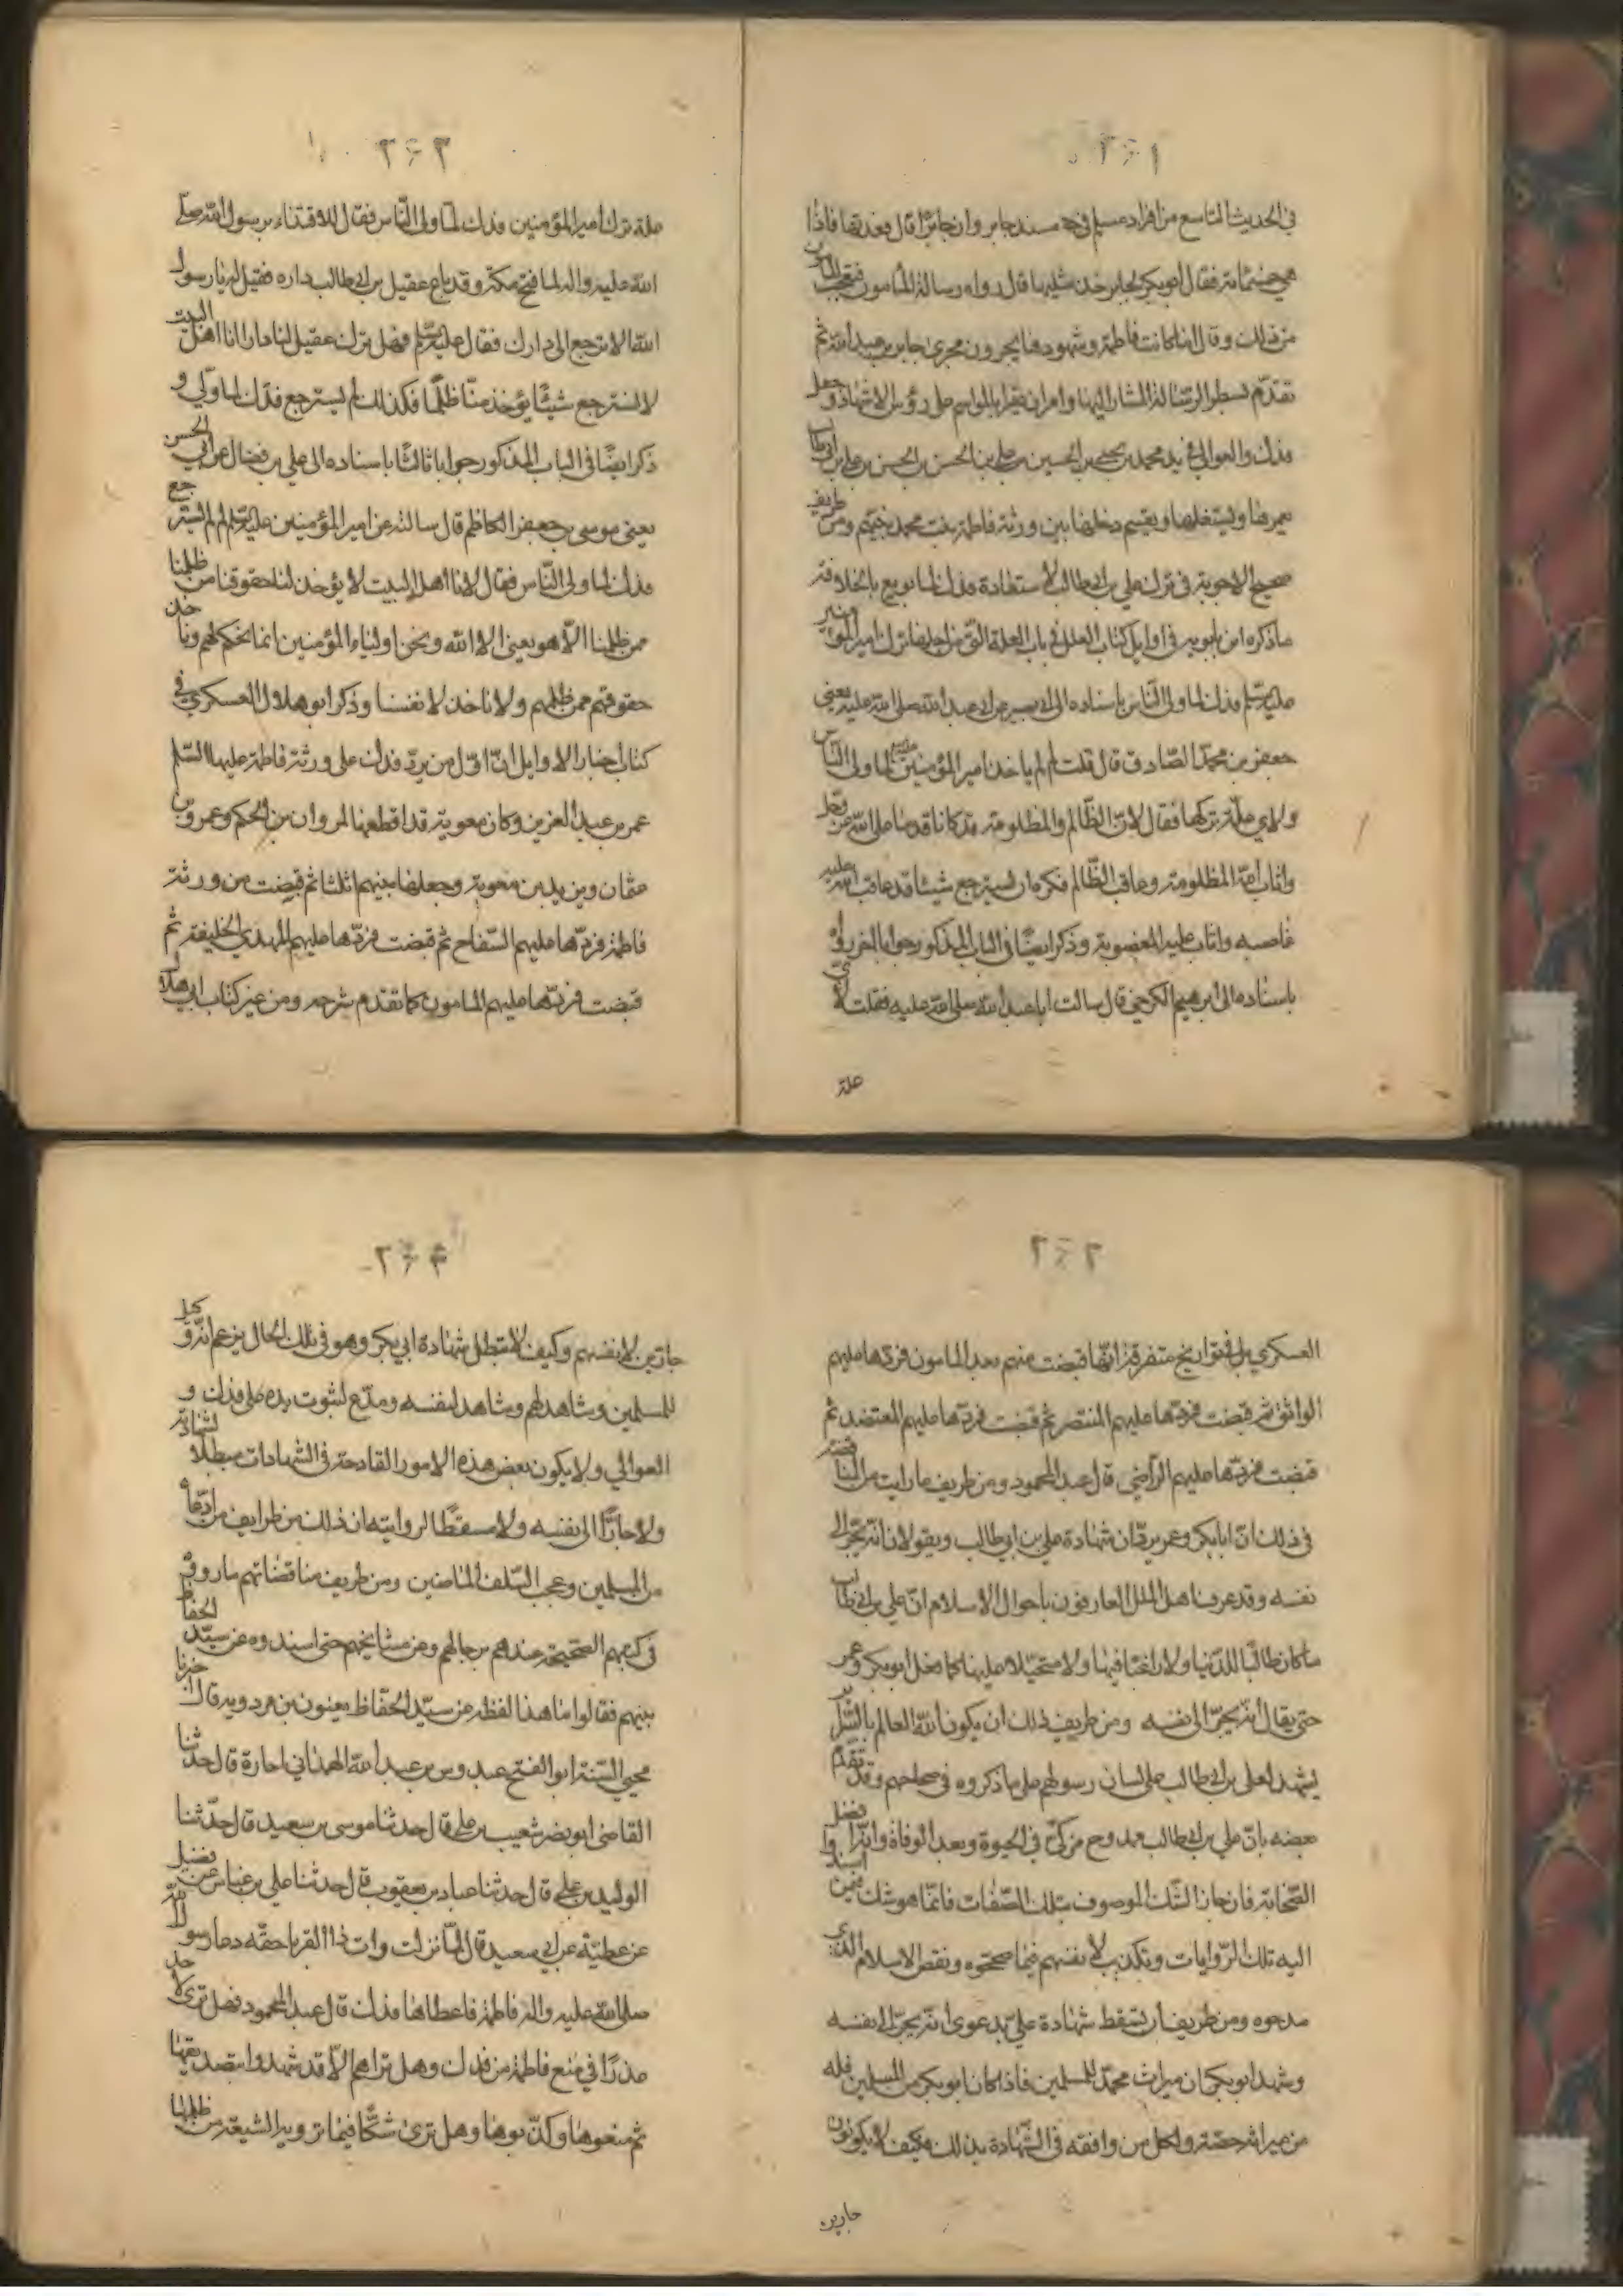 في الحديث التاسع من افراد مسلم في مسند جابر وان جابرا قال فعددتها فاذا
هي خمسمائة فقال ابو بكر لجابر خذ مثليها قال رواه رسالة المأمون فتعجب المأمون
من ذلك وقال اما كانت فاطمة وشهودها يجرون مجرى جابر بن عبد الله ثم
تقدم بسطر الرسالة المشار اليها وامر ان تقرأ بالمواسم على رؤس الاشهاد وجعل
فدك والعوالي في يد محمد بن يحيى بن الحسين بن علي بن الحسين بن علي بن ابي طالب
يعمرها ويستغلها ويقسم دخلها بين ورثة فاطمة بنت محمد نبيهم ومن طريف
صحيح الاجوبة في ترك علي بن ابي طالب لاستعادة فدك لما بويع بالخلافة
ما ذكره ابن بابويه في اوايل كتاب العلل في باب العلة التي من اجلها ترك امير المؤمنين
عليه السلم فدك لما ولى الناس باسناده الى ابي بصير عن ابي عبد الله صلى الله عليه يعني
جعفر بن محمد الصادق قال قلت له لم لم ياخذ امير المؤمنين فدك لما ولى الناس
ولاي علة تركها فقال لان الظالم والمظلومة قد كانا قدما على الله عز وجل
واثاب الله المظلومة وعاقب الظالم فكره ان يسترجع شيئا قد عاقب الله عليه
غاصبه واثاب عليه المغصوبة وذكر ايضا في الباب المذكور جوابا اخر في
باسناده الى ابرهيم الكرخي قال سالت ابا عبد الله صلى الله عليه فقلت له لاي
علة
علة ترك امير المؤمنين فدك لما ولى الناس فقال للاقتداء برسول الله صلى
الله عليه واله لما فتح مكة وقد باع عقيل بن ابي طالب داره فقيل له يا رسول
الله الا ترجع الى دارك فقال عليه السلم وهل ترك عقيل لنا دارا انا اهل البيت
لا نسترجع شيئا يؤخذ منا ظلما فكذلك لم يسترجع فدك لما ولي و
ذكر ايضا في الباب المذكور جوابا ثالثا باسناده الى علي بن فضال عن ابي الحسن
يعني موسى بن جعفر الكاظم قال سالته عن امير المؤمنين عليه السلم لم لم يسترجع
فدك لما ولى الناس فقال لانا اهل البيت لا يؤخذ لنا حقوقنا من ظلمنا
ممن ظلمنا الا هو يعني الا الله ونحن اولياء المؤمنين انما نحكم لهم وناخذ
حقوقهم ممن ظلمهم ولا ناخذ لانفسنا وذكر ابو هلال العسكري في
كتاب اخبار الاوايل ان اول من يرد فدك على ورثة فاطمة عليها السلم
عمر بن عبد العزيز وكان معوية قد اقطعها لمروان بن الحكم وعمرو بن
عثمان ويزيد بن معوية وجعلها بينهم اثلثا ثم قبضت من ورثة
فاطمة فردها عليهم السفاح ثم قبضت فردها عليهم المهدي الخليفة ثم
قبضت فردها عليهم المامون كما تقدم شرحه ومن غير كتاب ابي هلال
العسكري بل في تواريخ متفرقة انها قبضت منهم بعد المامون فردها عليهم
الواثق ثم قبضت فردها عليهم المنتصر ثم قبضت فردها عليهم المعتضد ثم
قبضت فردها عليهم الراضي قال عبد المحمود ومن طريف ما رايت من المناقضة
في ذلك ان ابا بكر وعمر يردان شهادة علي بن ابي طالب ويقولان انه يجر الى
نفسه وقد عرف اهل الملل العارفون باحوال الاسلام ان علي بن ابي طالب
ما كان طالبا للدنيا ولا راغبا فيها ولا متحيلا عليها كما فعل ابو بكر وعمر
حتى يقال انه يجر الى نفسه ومن طريف ذلك ان يكون الله العالم بالسرائر
يشهد لعلي بن ابي طالب على لسان رسولهم على ما ذكروه في صحاحهم وقد تقدم
بعضه بان علي بن ابي طالب ممدوح مزكى في الحيوة وبعد الوفاة وانه افضل
الصحابة فان جاز الشك الموصوف بتلك الصفات فانما هو شك فيمن اسندوا
اليه تلك الروايات وتكذيب لانفسهم فيما صححوه ونقض الاسلام الذي
مدحوه ومن طريف ان يسقط شهادة علي بدعوى انه يجر الى نفسه
وشهد ابو بكر ان ميراث محمد للمسلمين فاذا كان ابو بكر من المسلمين فله
من ميراثه حصة ولكل من وافقه في الشهادة بذلك فكيف لا يكونون
جارين
جارين لانفسهم وكيف لا تبطل شهادة ابي بكر وهو في تلك الحال يزعم انه وكيل
للمسلمين وشاهد لهم وشاهد لنفسه ومدع لثبوت يده على فدك و
العوالي ولا يكون بعض هذه الامور القادحة في الشهادات مبطلا لشهادته
ولا جارا الى نفسه ولا مسقطا لروايته ان ذلك من طرايف من ادعاه
من المسلمين وعجب السلف الماضين ومن طريف مناقضاتهم ما رووه
في كتبهم الصحيحة عندهم برجالهم وعن مشايخهم حتى اسندوه عن سيد الحفاظ
بينهم فقالوا ما هذا لفظه عن سيد الحفاظ يعنون بن مردويه قال اخبرنا
محيي السنة ابو الفتح عبدوس بن عبد الله الهمداني اجازة قال حدثنا
القاضي ابو نصر شعيب بن علي قال حدثنا موسى بن سعيد قال حدثنا
الوليد بن علي قال حدثنا عباد بن يعقوب قال حدثنا علي بن عباس عن فضيل
عن عطية عن ابي سعيد قال لما نزلت وات ذا القربا حقه دعا رسول الله
صلى الله عليه واله فاطمة فاعطاها فدك قال عبد المحمود فهل ترى لاحد
عذرا في منع فاطمة من فدك وهل تراهم الا قد شهدوا بتصديقها
ثم منعوها وكذبوها وهل ترى شكا فيما ترويه الشيعة من ظلمها